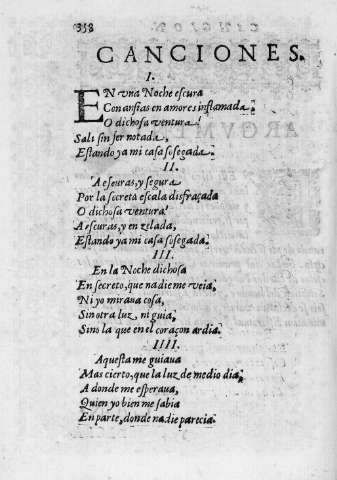 358
CANCIONES.
I.
EN vna Noche escura
Con ansias en amores inflamada
O dichosa ventura!
Sali sin ser notada,
Estando ya mi casa sosegada.
II.
A escuras, y segura
Por la secreta escala disfraçada
O dichosa ventura!
A escuras, y en zelada,
Estando ya mi casa sosegada.
III.
En la Noche dichosa
En secreto, que nadie me veia,
Ni yo miraua cosa,
Sin otra luz, ni guia,
Sino la que en el coraçon ardia.
IIII.
Aquesta me guiaua
Mas cierto, que la luz de medio dia,
A donde me esperaua,
Quien yo bien me sabia
En parte, donde nadie parecia.